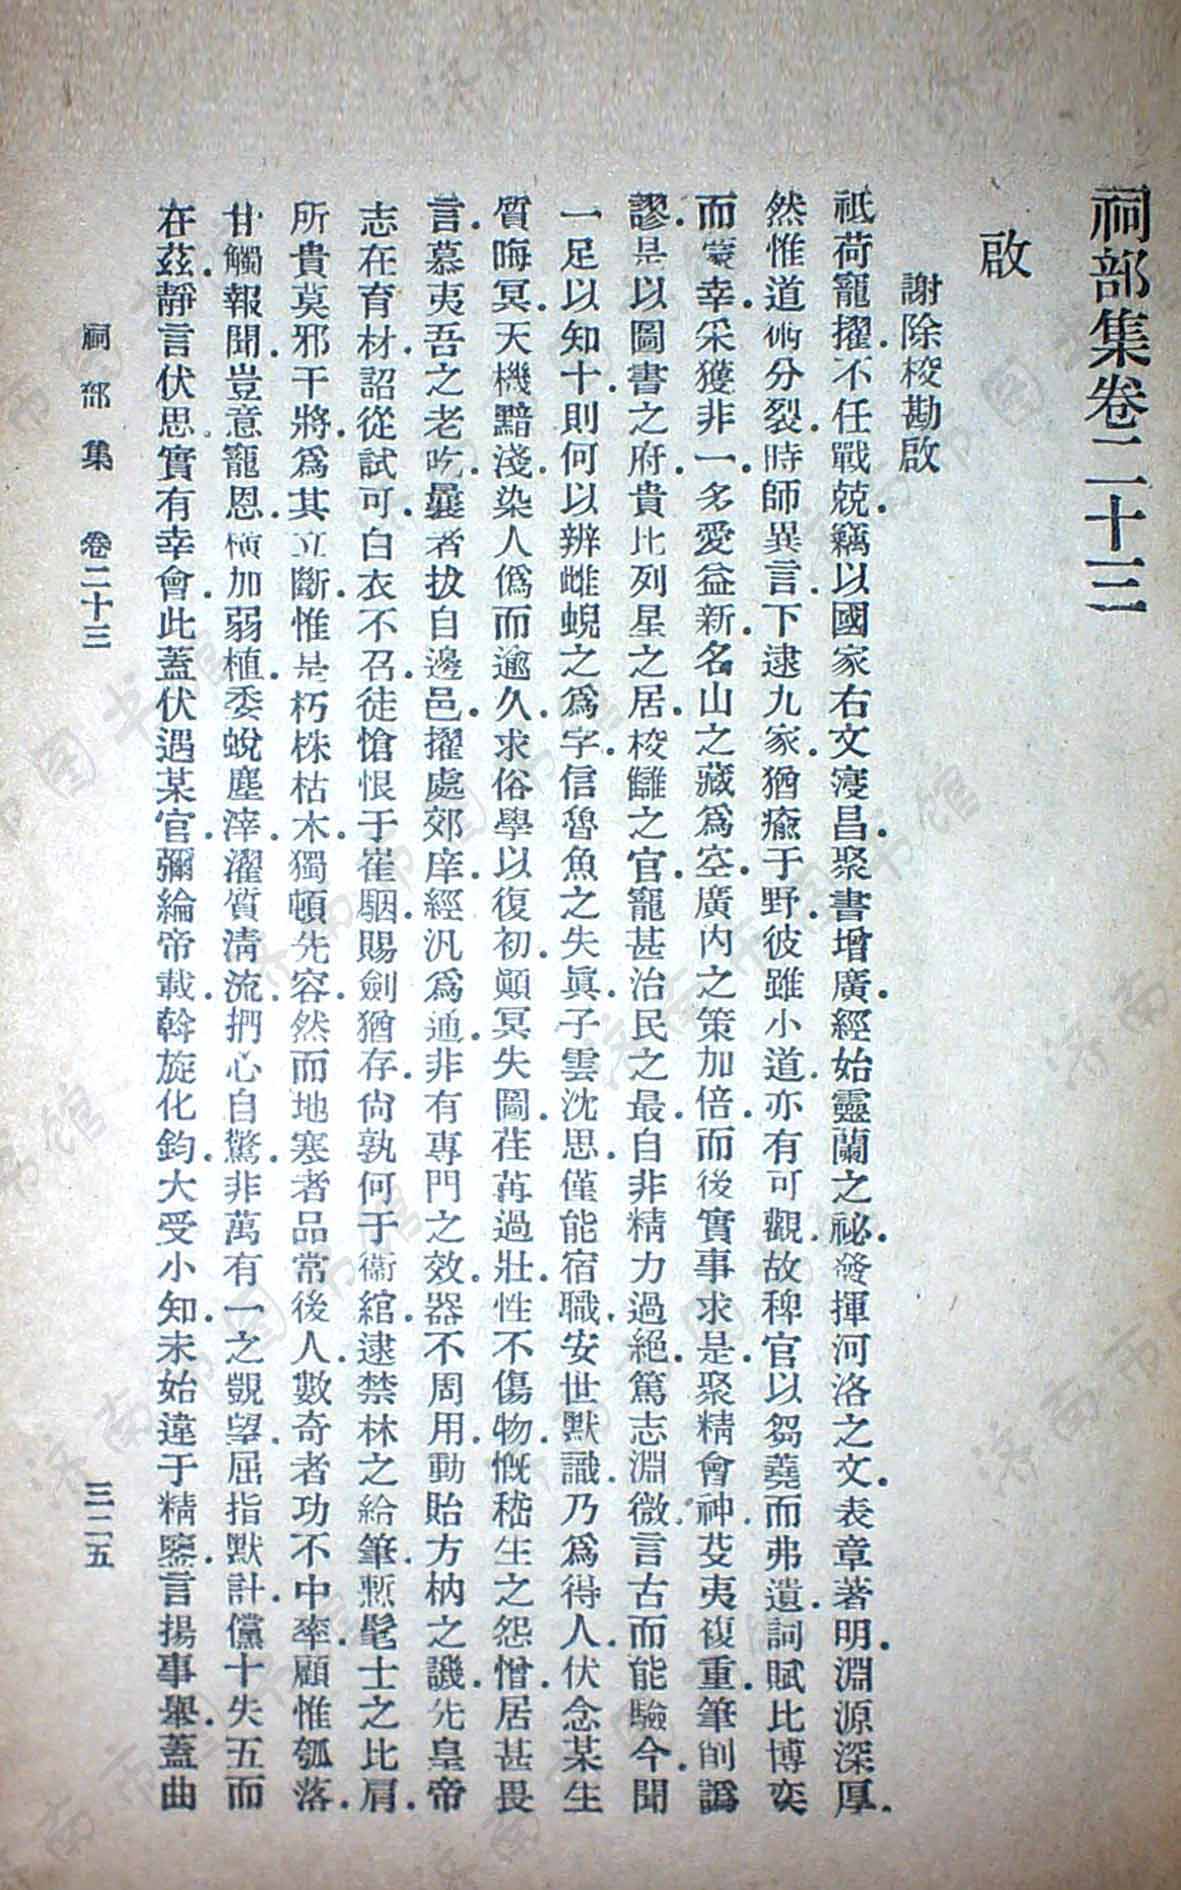 祠部集卷二十三
啟
謝除校勘啟
祗荷寵擢．不任戰兢．竊以國家右文寖昌．聚書增廣．經始靈蘭之祕．發揮河洛之文．表章著明．淵源深厚．
然惟道術分裂．時師異言．下逮九家．猶癒于野．彼雖小道．亦有可觀．故稗官以芻蕘而弗遺．詞賦比博奕
而蒙幸．采獲非一．多愛益新．名山之藏爲空．廣內之策加倍．而後實事求是．聚精會神．芟夷複重．筆削譌
謬．是以圖書之府．貴比列星之居．校讎之官．寵甚治民之最．自非精力過絕．篤志淵微．言古而能驗今．聞
一足以知十．則何以辨雌蜺之爲字．信魯魚之失眞．子雲沈思．僅能宿職．安世默識．乃爲得人．伏念某生
質晦冥．天機黯淺．染人僞而逾久．求俗學以復初．顚冥失圖．荏苒過壯．性不傷物．慨嵇生之怨憎．居甚畏
言．慕夷吾之老吃．曩者拔自邊邑．擢處郊庠．經汎爲通．非有專門之效．器不周用．動貽方枘之譏．先皇帝
志在育材．詔從試可．白衣不召．徒愴恨于崔駰．賜劍猶存．尙孰何于衞綰．逮禁林之給筆．慙髦士之比肩．
所貴莫邪干將．爲其立斷．惟是朽株枯木．獨頓先容．然而地寒者品常後人．數奇者功不中率．顧惟瓠落．
甘觸報聞．豈意寵恩．橫加弱植．委蛻塵滓．濯質淸流．捫心自驚．非萬有一之覬望．屈指默計．儻十失五而
在茲．靜言伏思．實有幸會．此蓋伏遇某官．彌綸帝載．斡旋化鈞．大受小知．未始違于精鑒．言揚事舉．蓋曲
祠部集　卷二十三　三二五
济南市图书馆